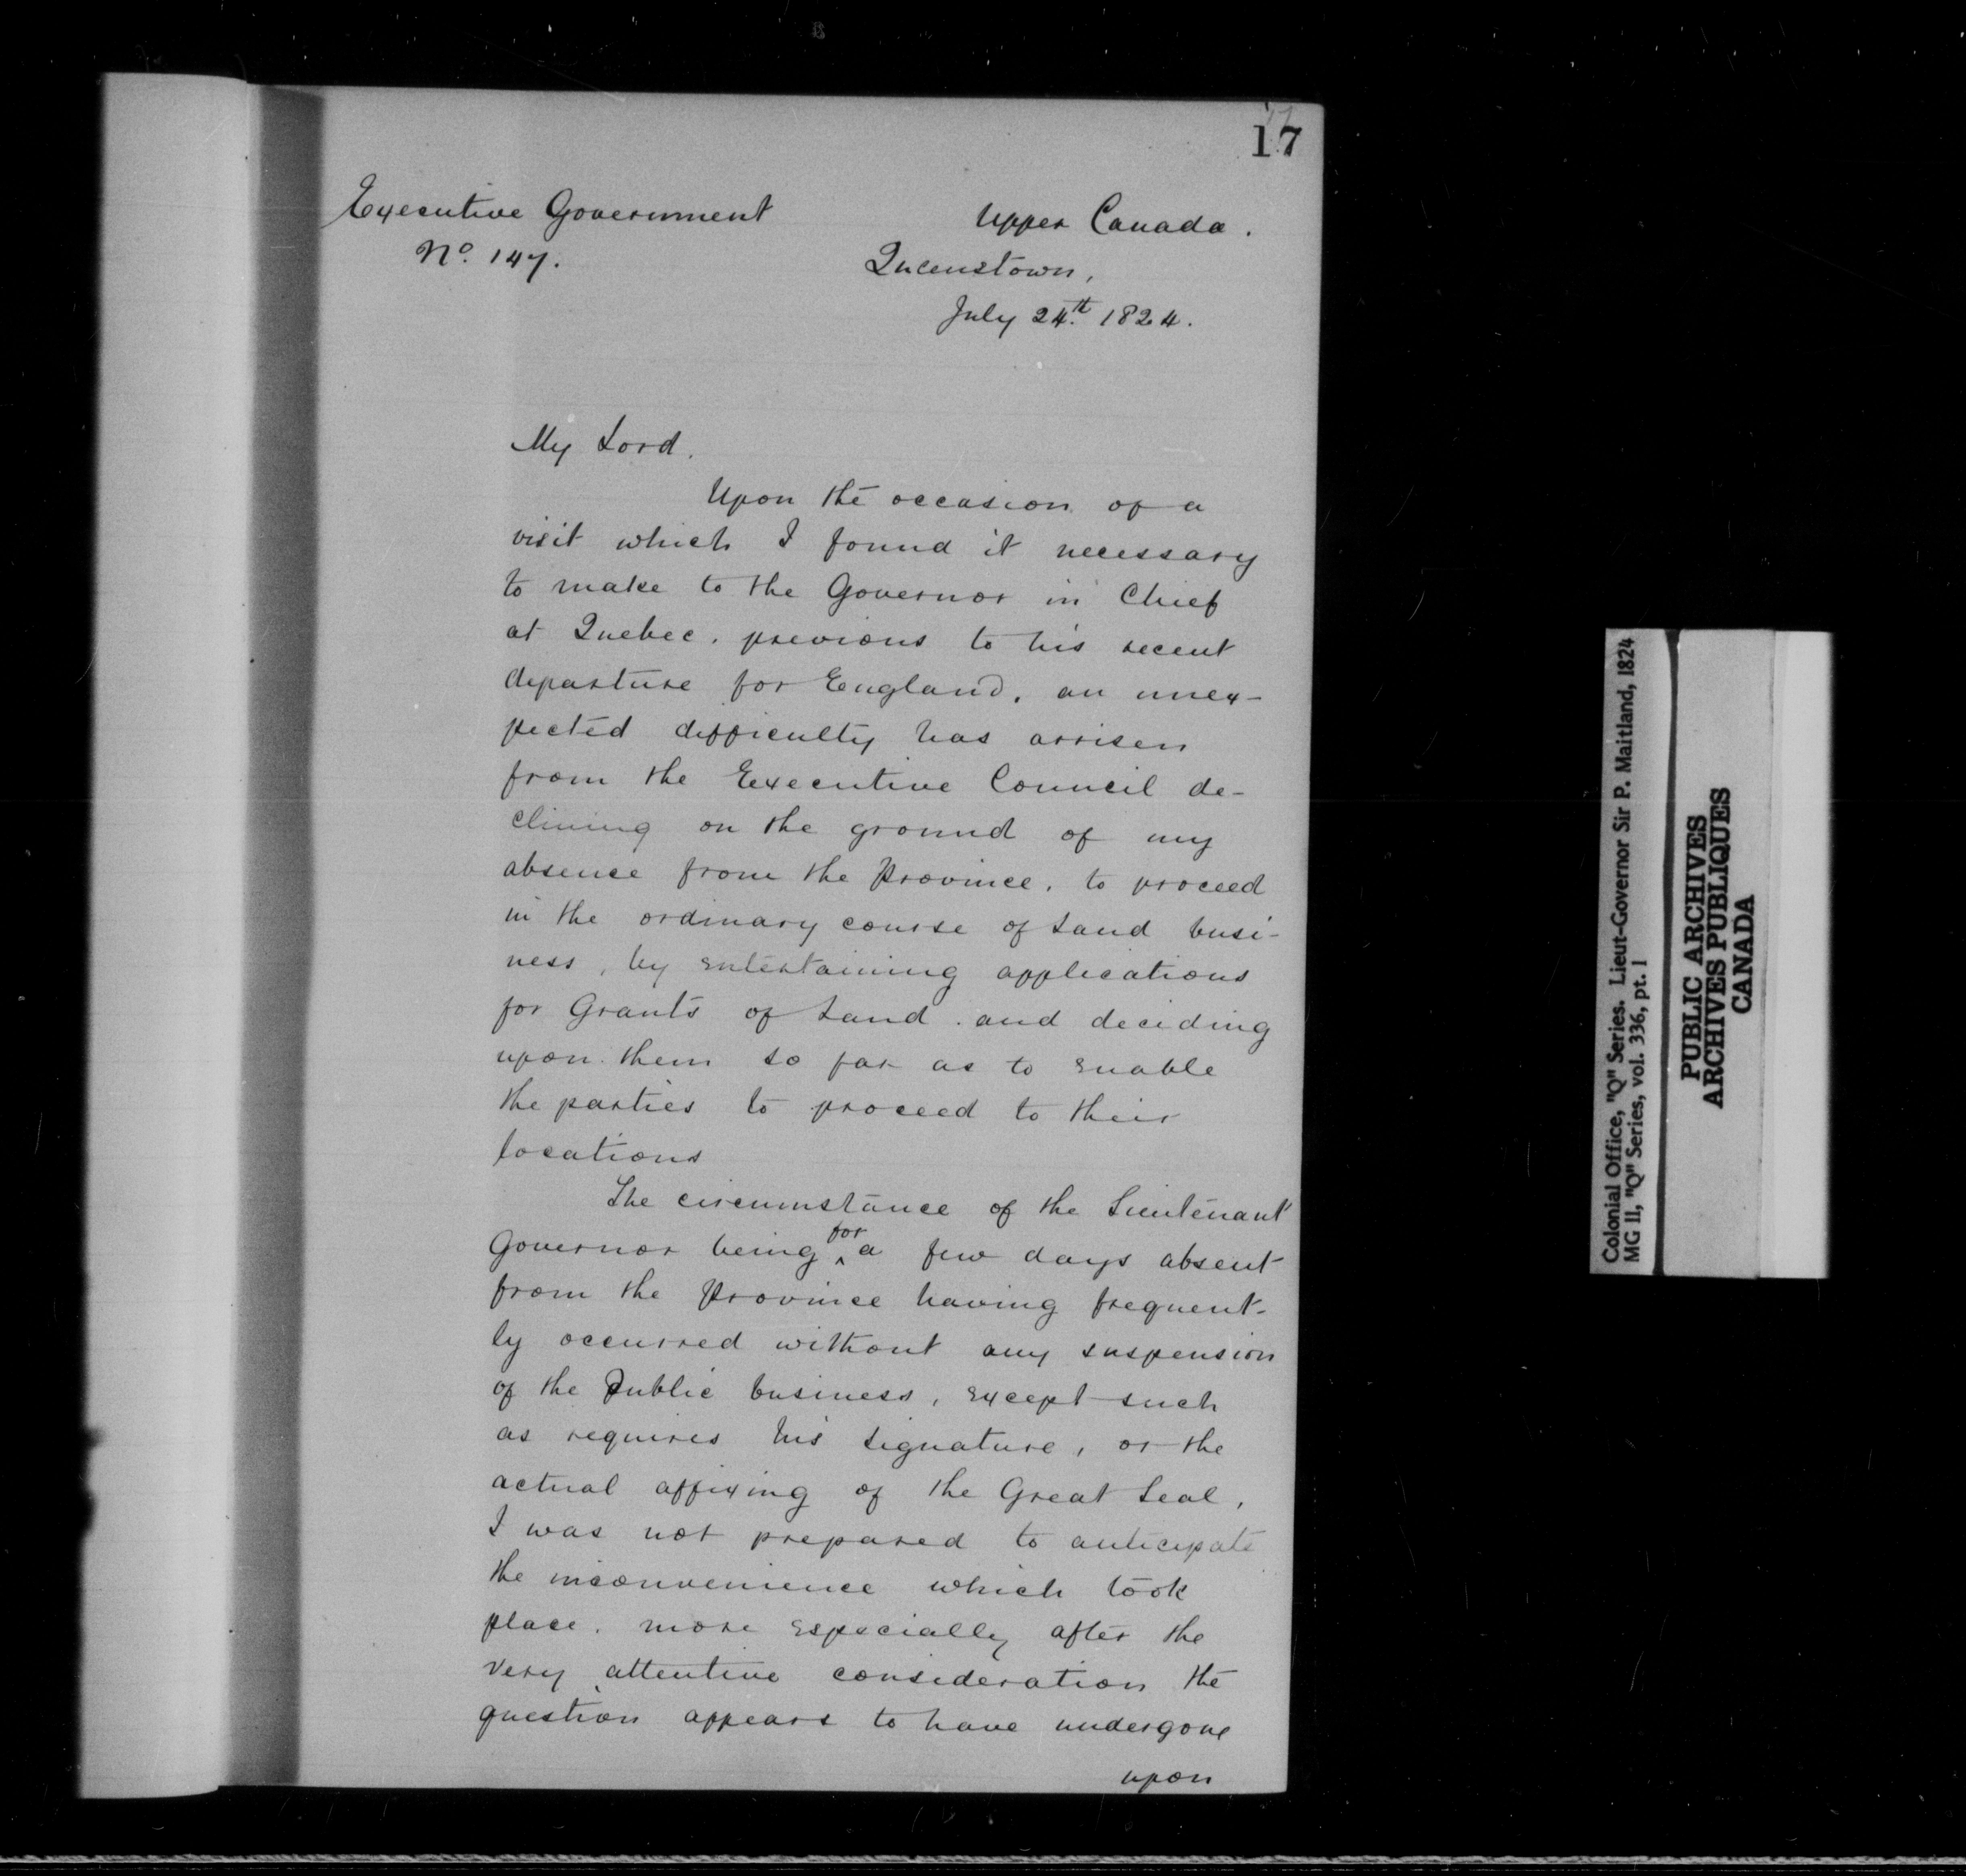 17
Executive Government
Upper Canada.
No. 147.
Queenstown,
July 24th. 1824.
My Lord.
Upon the occasion of a
visit which I found it necessary
to make to the Governor in Chief
at Quebec, previous to his recent
departure for England, an unex-
pected difficulty has arrisen
from the Executive Council de-
clining on the ground of my
absence from the Province, to proceed
in the ordinary course of Land busi-
ness, by entertaining applications
for Grants of Land. and deciding
upon them so far as to enable
the parties to proceed to their
locations
The circumstance of the Lieutenant
Governor being for a few days absent
from the Province having frequent-
ly occurred without any suspension
of the Public business, except such
as requires his signature, or the
actual affixing of the Great Seal,
I was not prepared to anticipate
the inconvenience which took
place, more especially after the
very attentive consideration the
question appears to have undergone
upon
Colonial Office, "Q" Series. Lieut-Governor Sir P. Maitland, 1824
MG II, "Q" Series, vol. 336, pt. I
PUBLIC ARCHIVES
ARCHIVES PUBLIQUES
CANADA